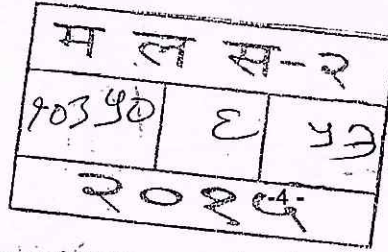 म ल स-२
१०३५० ६ ५३
२०१५
-4-